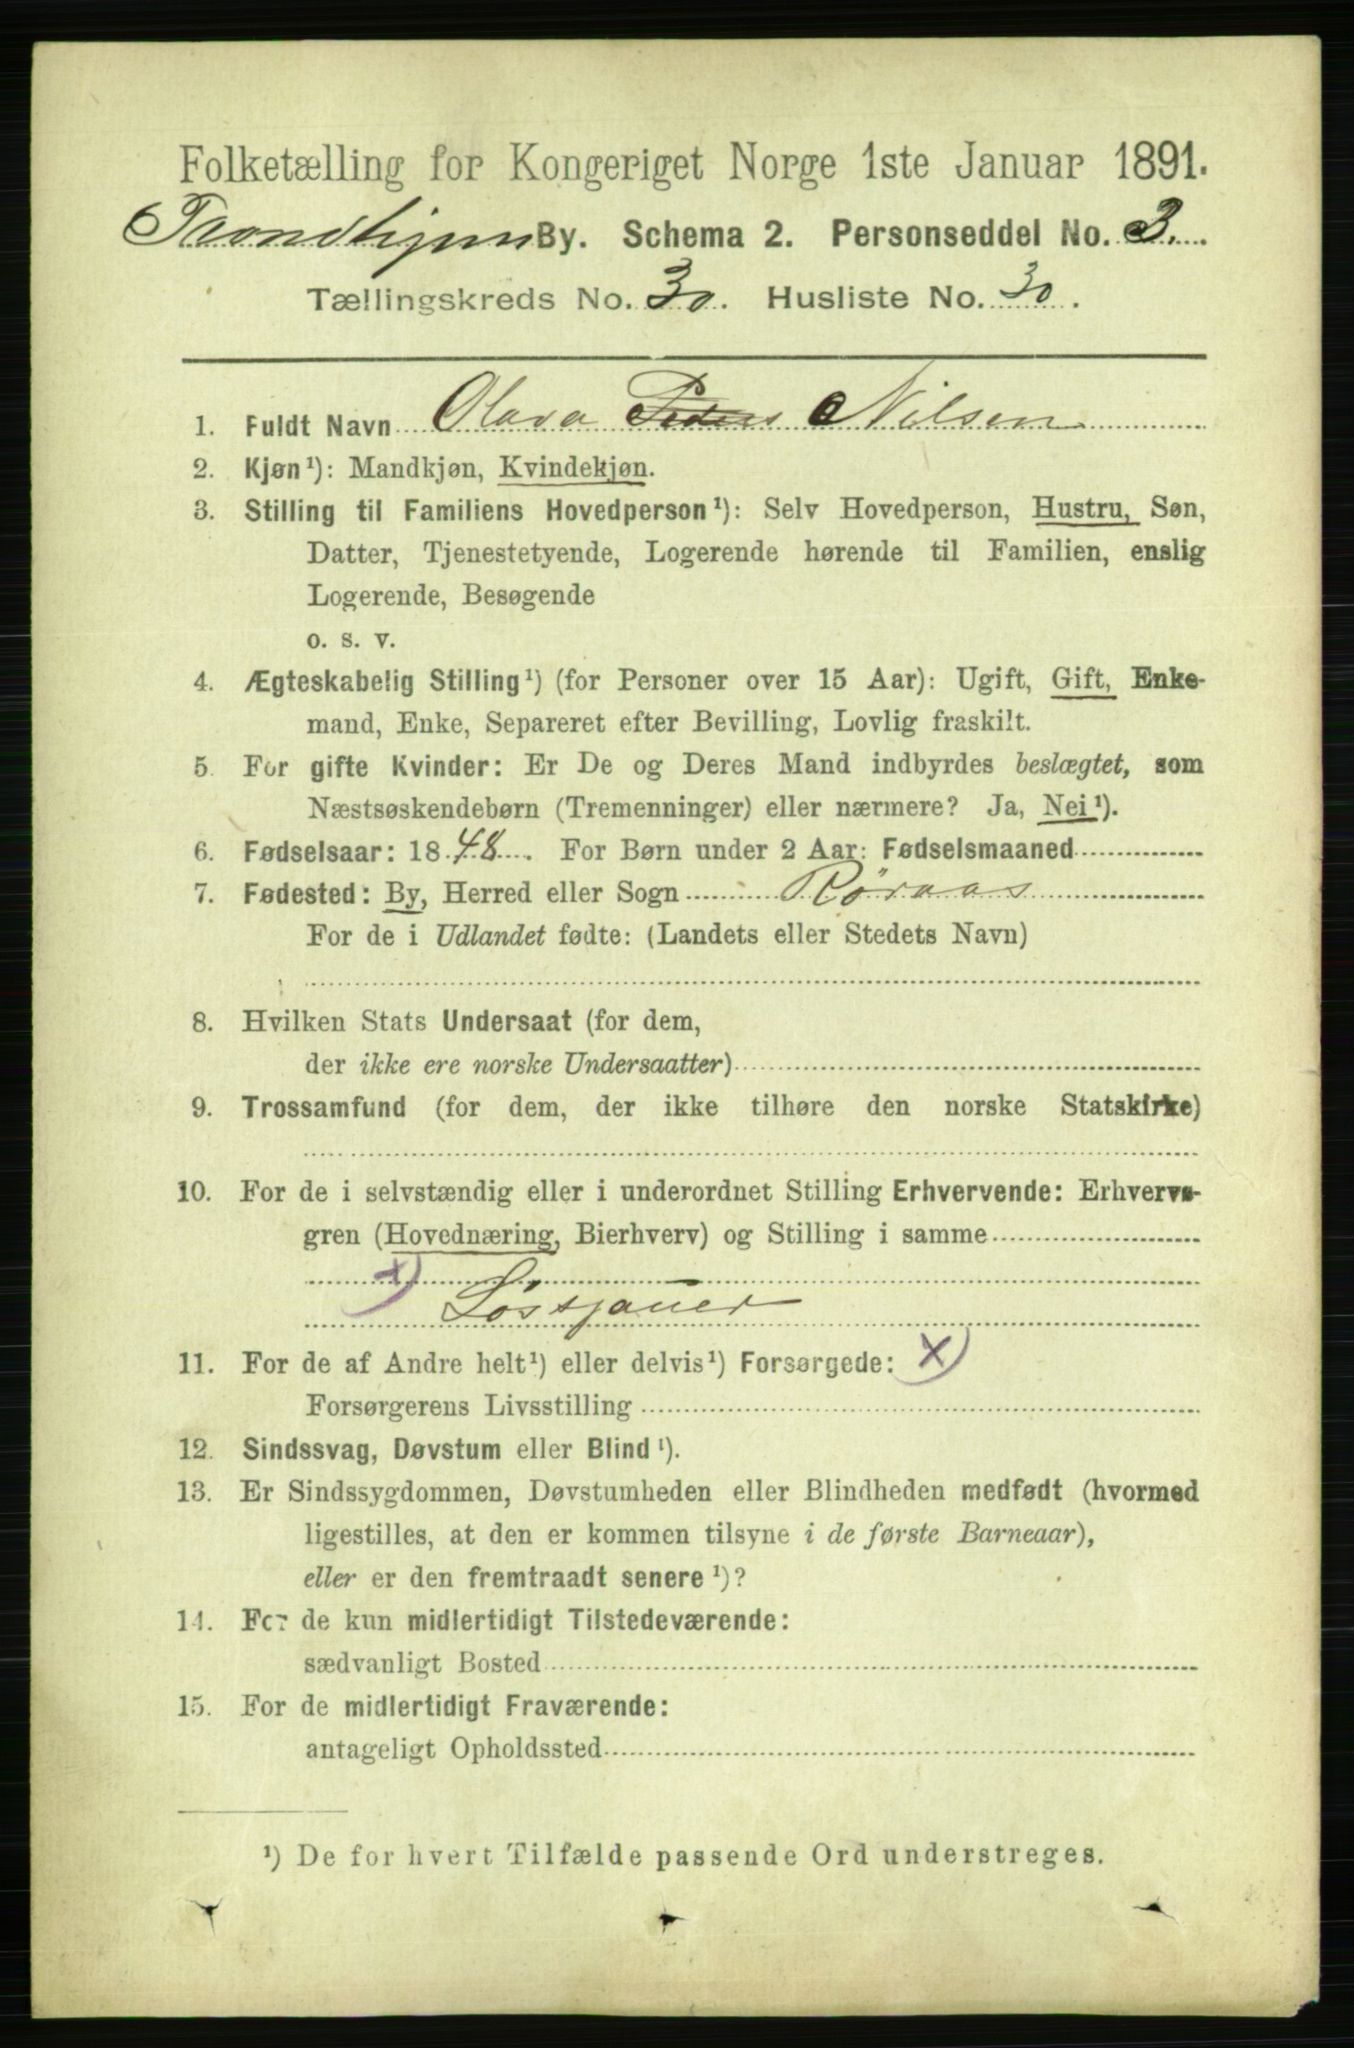 Folketælling for Kongeriget Norge 1ste Januar 1891.
Trondhjem By. Schema 2. Personseddel No. 3.
Tællingskreds No. 30. Husliste No. 30.
1. Fuldt Navn Olava Peders Nilsen
2. Kjøn¹): Mandkjøn, Kvindekjøn.
3. Stilling til Familiens Hovedperson¹): Selv Hovedperson, Hustru, Søn,
Datter, Tjenestetyende, Logerende hørende til Familien, enslig
Logerende, Besøgende
o. s. v.
4. Ægteskabelig Stilling¹) (for Personer over 15 Aar): Ugift, Gift, Enke-
mand, Enke, Separeret efter Bevilling, Lovlig fraskilt.
5. For gifte Kvinder: Er De og Deres Mand indbyrdes beslægtet, som
Næstsøskendebørn (Tremenninger) eller nærmere? Ja, Nei¹).
6. Fødselsaar: 1848. For Børn under 2 Aar: Fødselsmaaned
7. Fødested: By, Herred eller Sogn Røraas
For de i Udlandet fødte: (Landets eller Stedets Navn)
8. Hvilken Stats Undersaat (for dem,
der ikke ere norske Undersaatter)
9. Trossamfund (for dem, der ikke tilhøre den norske Statskirke)
10. For de i selvstændig eller i underordnet Stilling Erhvervende: Erhvervs-
gren (Hovednæring, Bierhverv) og Stilling i samme
x)
Løssjauer
11. For de af Andre helt¹) eller delvis¹) Forsørgede: x)
Forsørgerens Livsstilling
12. Sindssvag, Døvstum eller Blind¹).
13. Er Sindssygdommen, Døvstumheden eller Blindheden medfødt (hvormed
ligestilles, at den er kommen tilsyne i de første Barneaar),
eller er den fremtraadt senere¹)?
14. For de kun midlertidigt Tilstedeværende:
sædvanligt Bosted
15. For de midlertidigt Fraværende:
antageligt Opholdssted
¹) De for hvert Tilfælde passende Ord understreges.